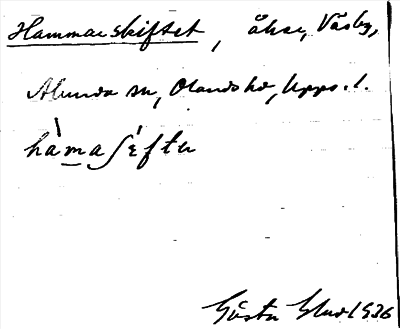 Hammarskiftet, åker, Väsby,
Alunda sn, Olands hd, Upps. l.
hàmaʃéftə
Gösta 1936